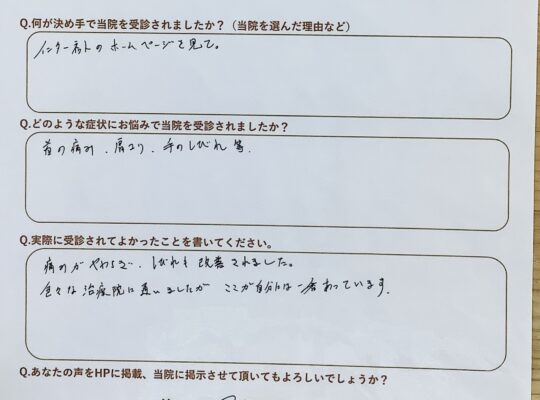 Q.何が決め手で当院を受診されましたか？（当院を選んだ理由など）
インターネットのホームページを見て。
Q.どのような症状にお悩みで当院を受診されましたか？
首の痛み、肩こり、手のしびれ等。
Q.実際に受診されてよかったことを書いてください。
痛みがやわらぎ、しびれも改善されました。
色々な治療院に通いましたが ここが自分には一番あっています。
Q.あなたの声をHPに掲載、当院に掲示させて頂いてもよろしいでしょうか？